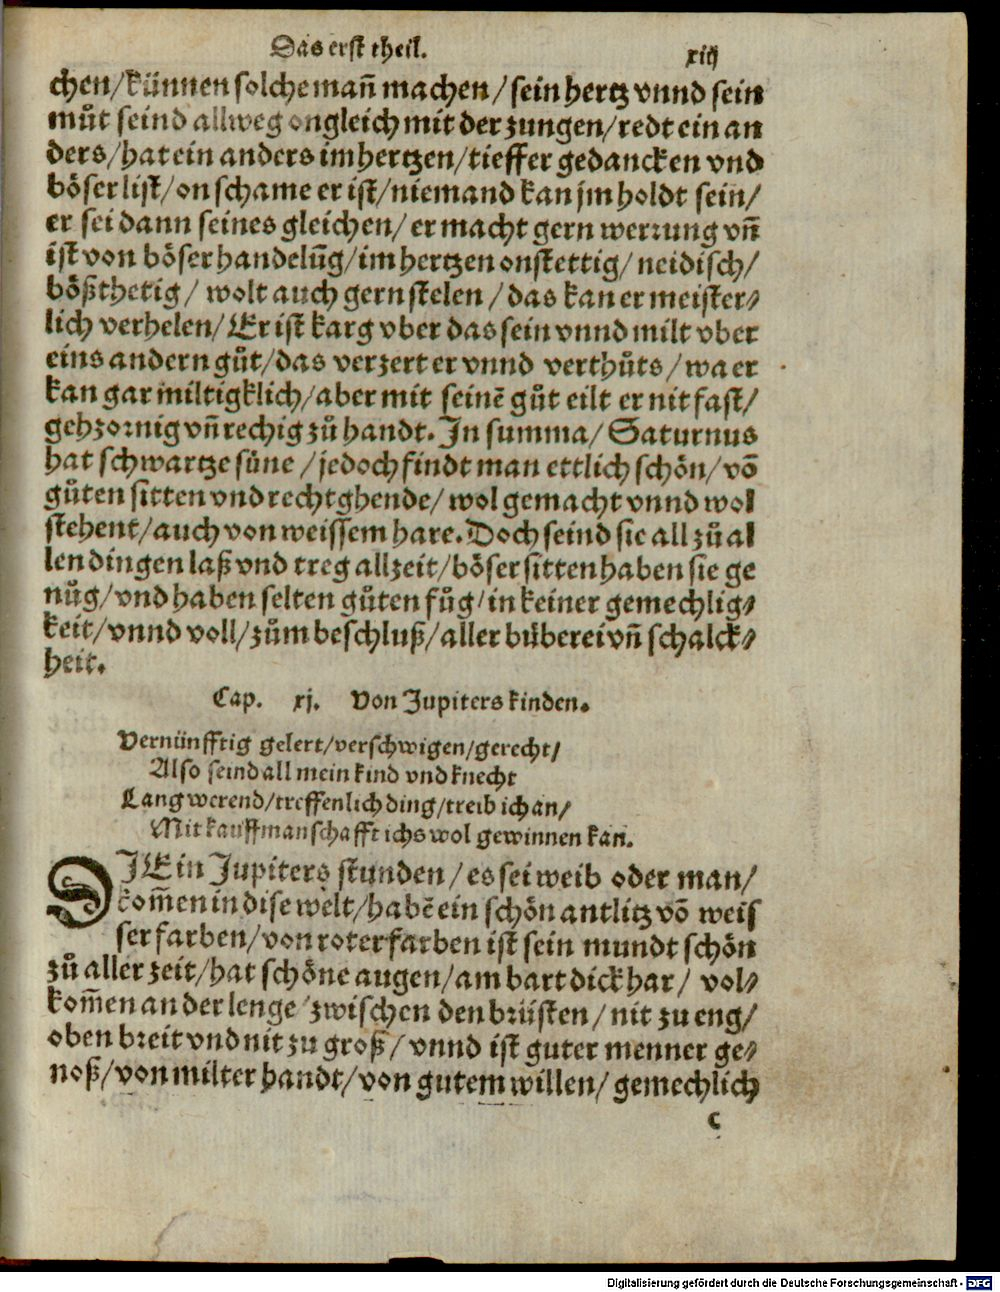 Das erst theil. xiij
chen/künnen solche mañ machen/sein hertz vnnd sein
můt seind allweg ongleich mit der zungen/redt ein an
ders/hat ein anders im hertzen/tieffer gedancken vnd
böser list/on schame er ist/niemand kan jm holdt sein/
er sei dann seines gleichen/er macht gern werrung vñ
ist von böser handelũg/im hertzen onstettig/neidisch/
bößthetig/wolt auch gern stelen/das kan er meister⸗
lich verhelen/Er ist karg vber das sein vnnd milt vber
eins andern gůt/das verzert er vnnd verthůts/wa er
kan gar miltigklich/aber mit seinẽ gůt eilt er nit fast/
gehzornig vñ rechig zů handt. In summa/Saturnus
hat schwartze süne/jedoch findt man ettlich schön/võ
gůten sitten vnd rechtghende/wol gemacht vnnd wol
stehent/auch von weissem hare. Doch seind sie all zů al
len dingen laß vnd treg allzeit/böser sitten haben sie ge
nůg/vnd haben selten gůten fůg/in keiner gemechlig⸗
keit/vnnd voll/zům beschluß/aller büberei vñ schalck⸗
heit.
Cap. xj. Von Jupiters kinden.
Vernünfftig gelert/verschwigen/gerecht/
Also seind all mein kind vnd knecht
Lang werend/treffenlich ding/treib ich an/
Mit kauffmanschafft ichs wol gewinnen kan.
DJE in Jupiters stunden/es sei weib oder man/
kom̃en in dise welt/habẽ ein schön antlitz võ weis
ser farben/von roter farben ist sein mundt schön
zů aller zeit/hat schöne augen/am bart dick har/vol⸗
kom̃en an der lenge/zwischen den brüsten/nit zu eng/
oben breit vnd nit zu groß/vnnd ist guter menner ge⸗
noß/von milter handt/von gutem willen/gemechlich
c
Digitalisierung gefördert durch die Deutsche Forschungsgemeinschaft - DFG